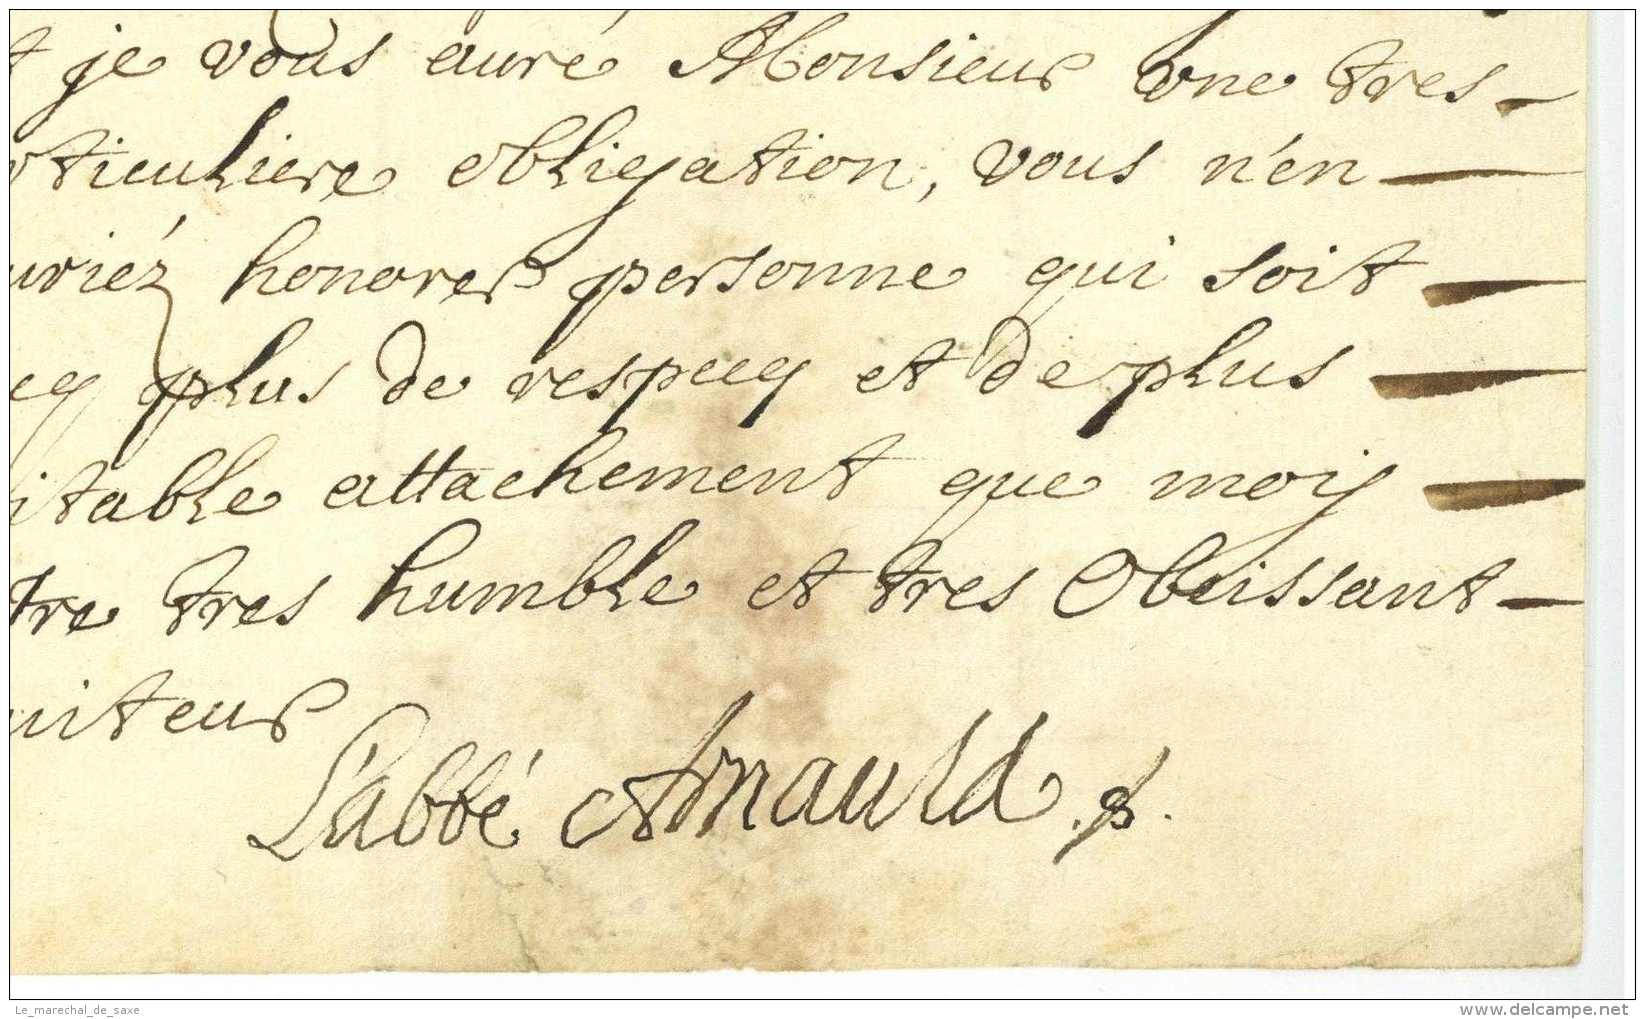 t je vous auré Monsieur une tres
rticuliere obligation, vous n'en
uriéz honorer personne qui soit
ecq plus de respecq et de plus
itable attachement que moij
tre tres humble et tres Obeissant
uiteur
L'abbé Arnauld .p.
Le_marechal_de_saxe
www.delcampe.net